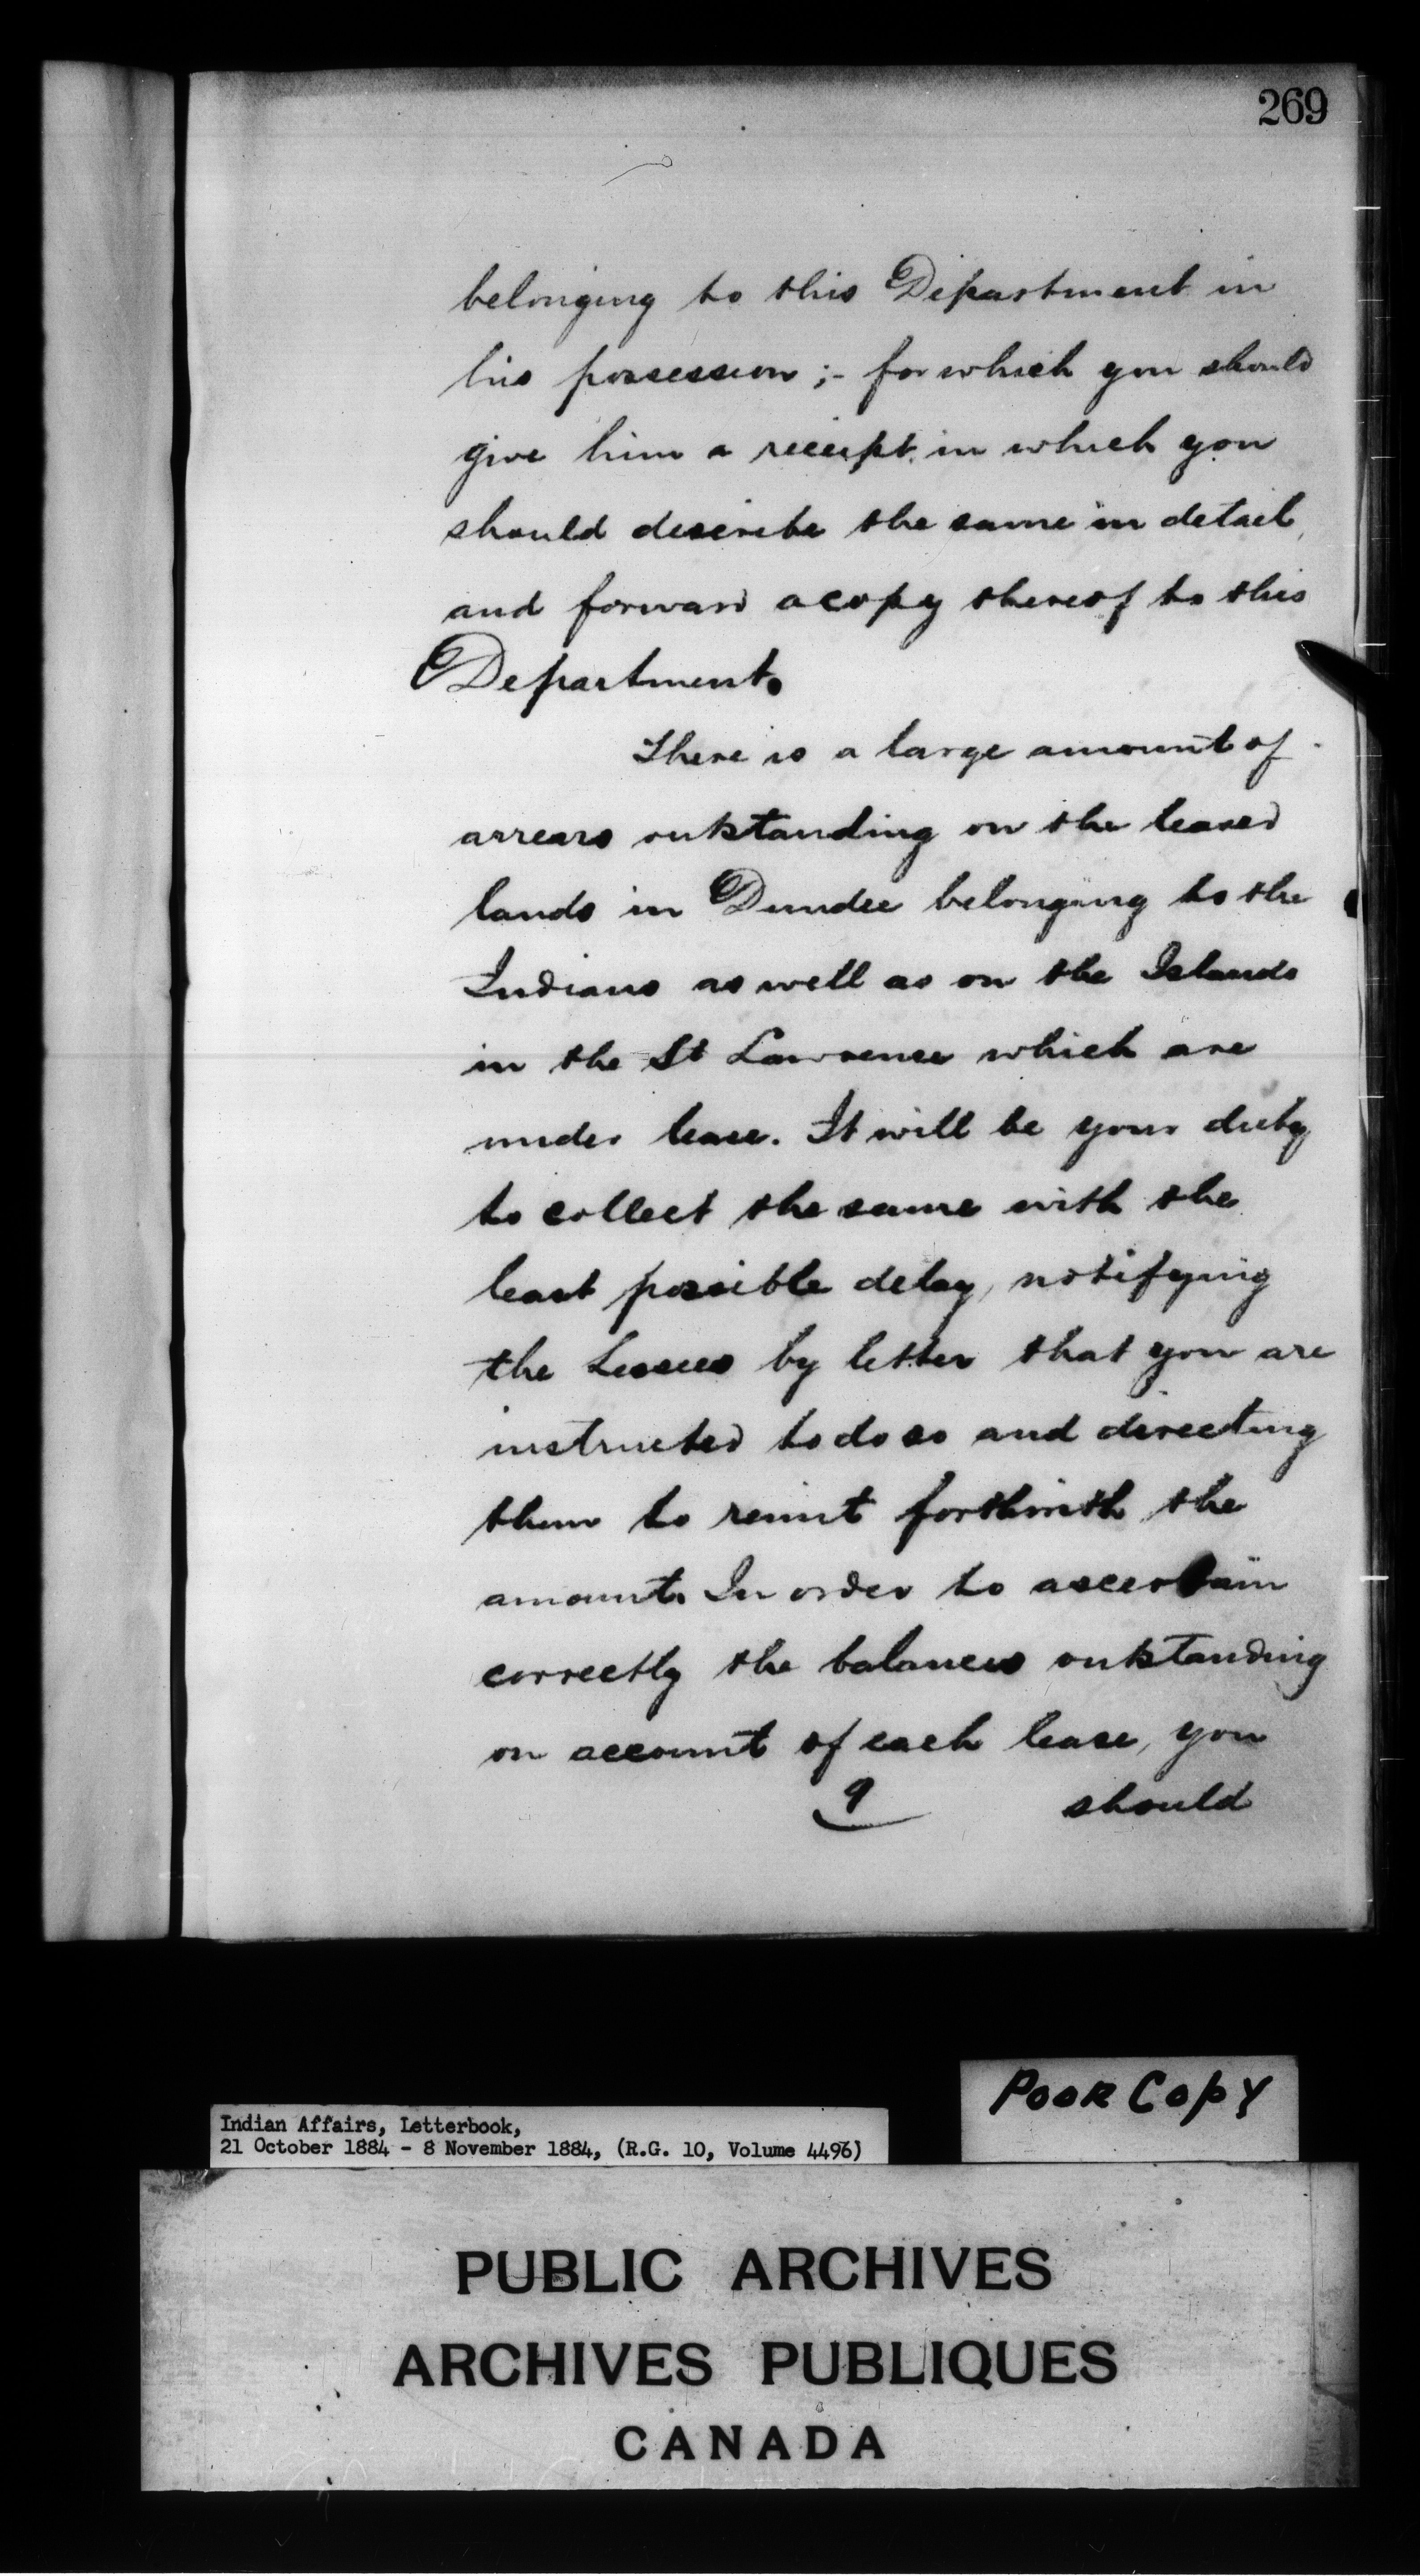 269
belonging to this Department in
his possession ;- for which you should
give him a receipt in which you
should describe the same in detail,
and forward a copy thereof to this
Department.
There is a large amount of
arrears outstanding on the leased
lands in Dundee belonging to the
Indians as well as on the Islands
in the St Lawrence which are
under lease. It will be your duty
to collect the same with the
least possible delay, notifying
the Lessees by letter that you are
instructed to do so and directing
them to remit forthwith the
amount. In order to ascertain
correctly the balances outstanding
on account of each lease, you
9 should
Poor Copy
Indian Affairs, Letterbook,
21 October 1884 - 8 November 1884, (R.G. 10, Volume 4496)
PUBLIC ARCHIVES
ARCHIVES PUBLIQUES
CANADA